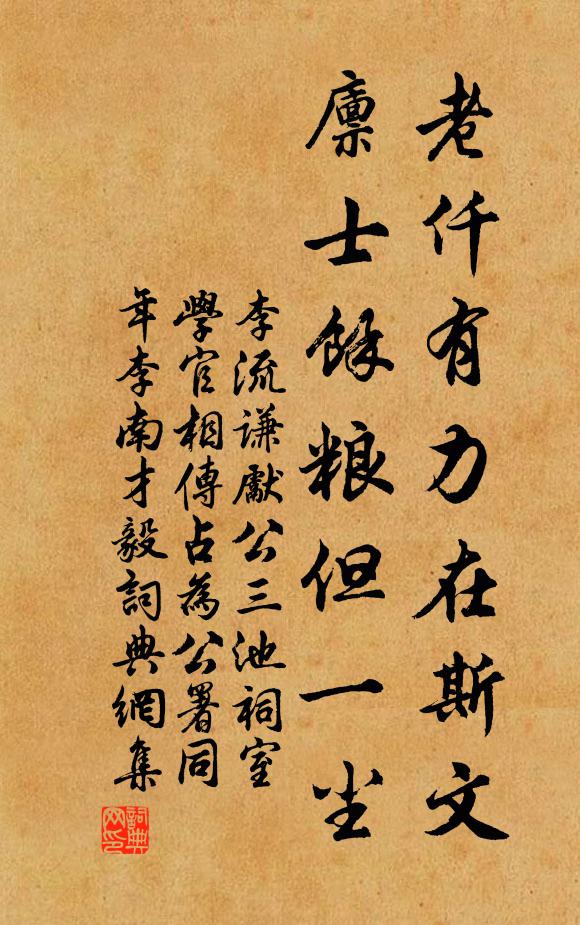 老仟有力在斯文
廪士餘粮但一坐
李流谦獻公三池祠室
學官相傳占為公署同
年李南才毅詞典網集
詞典网印